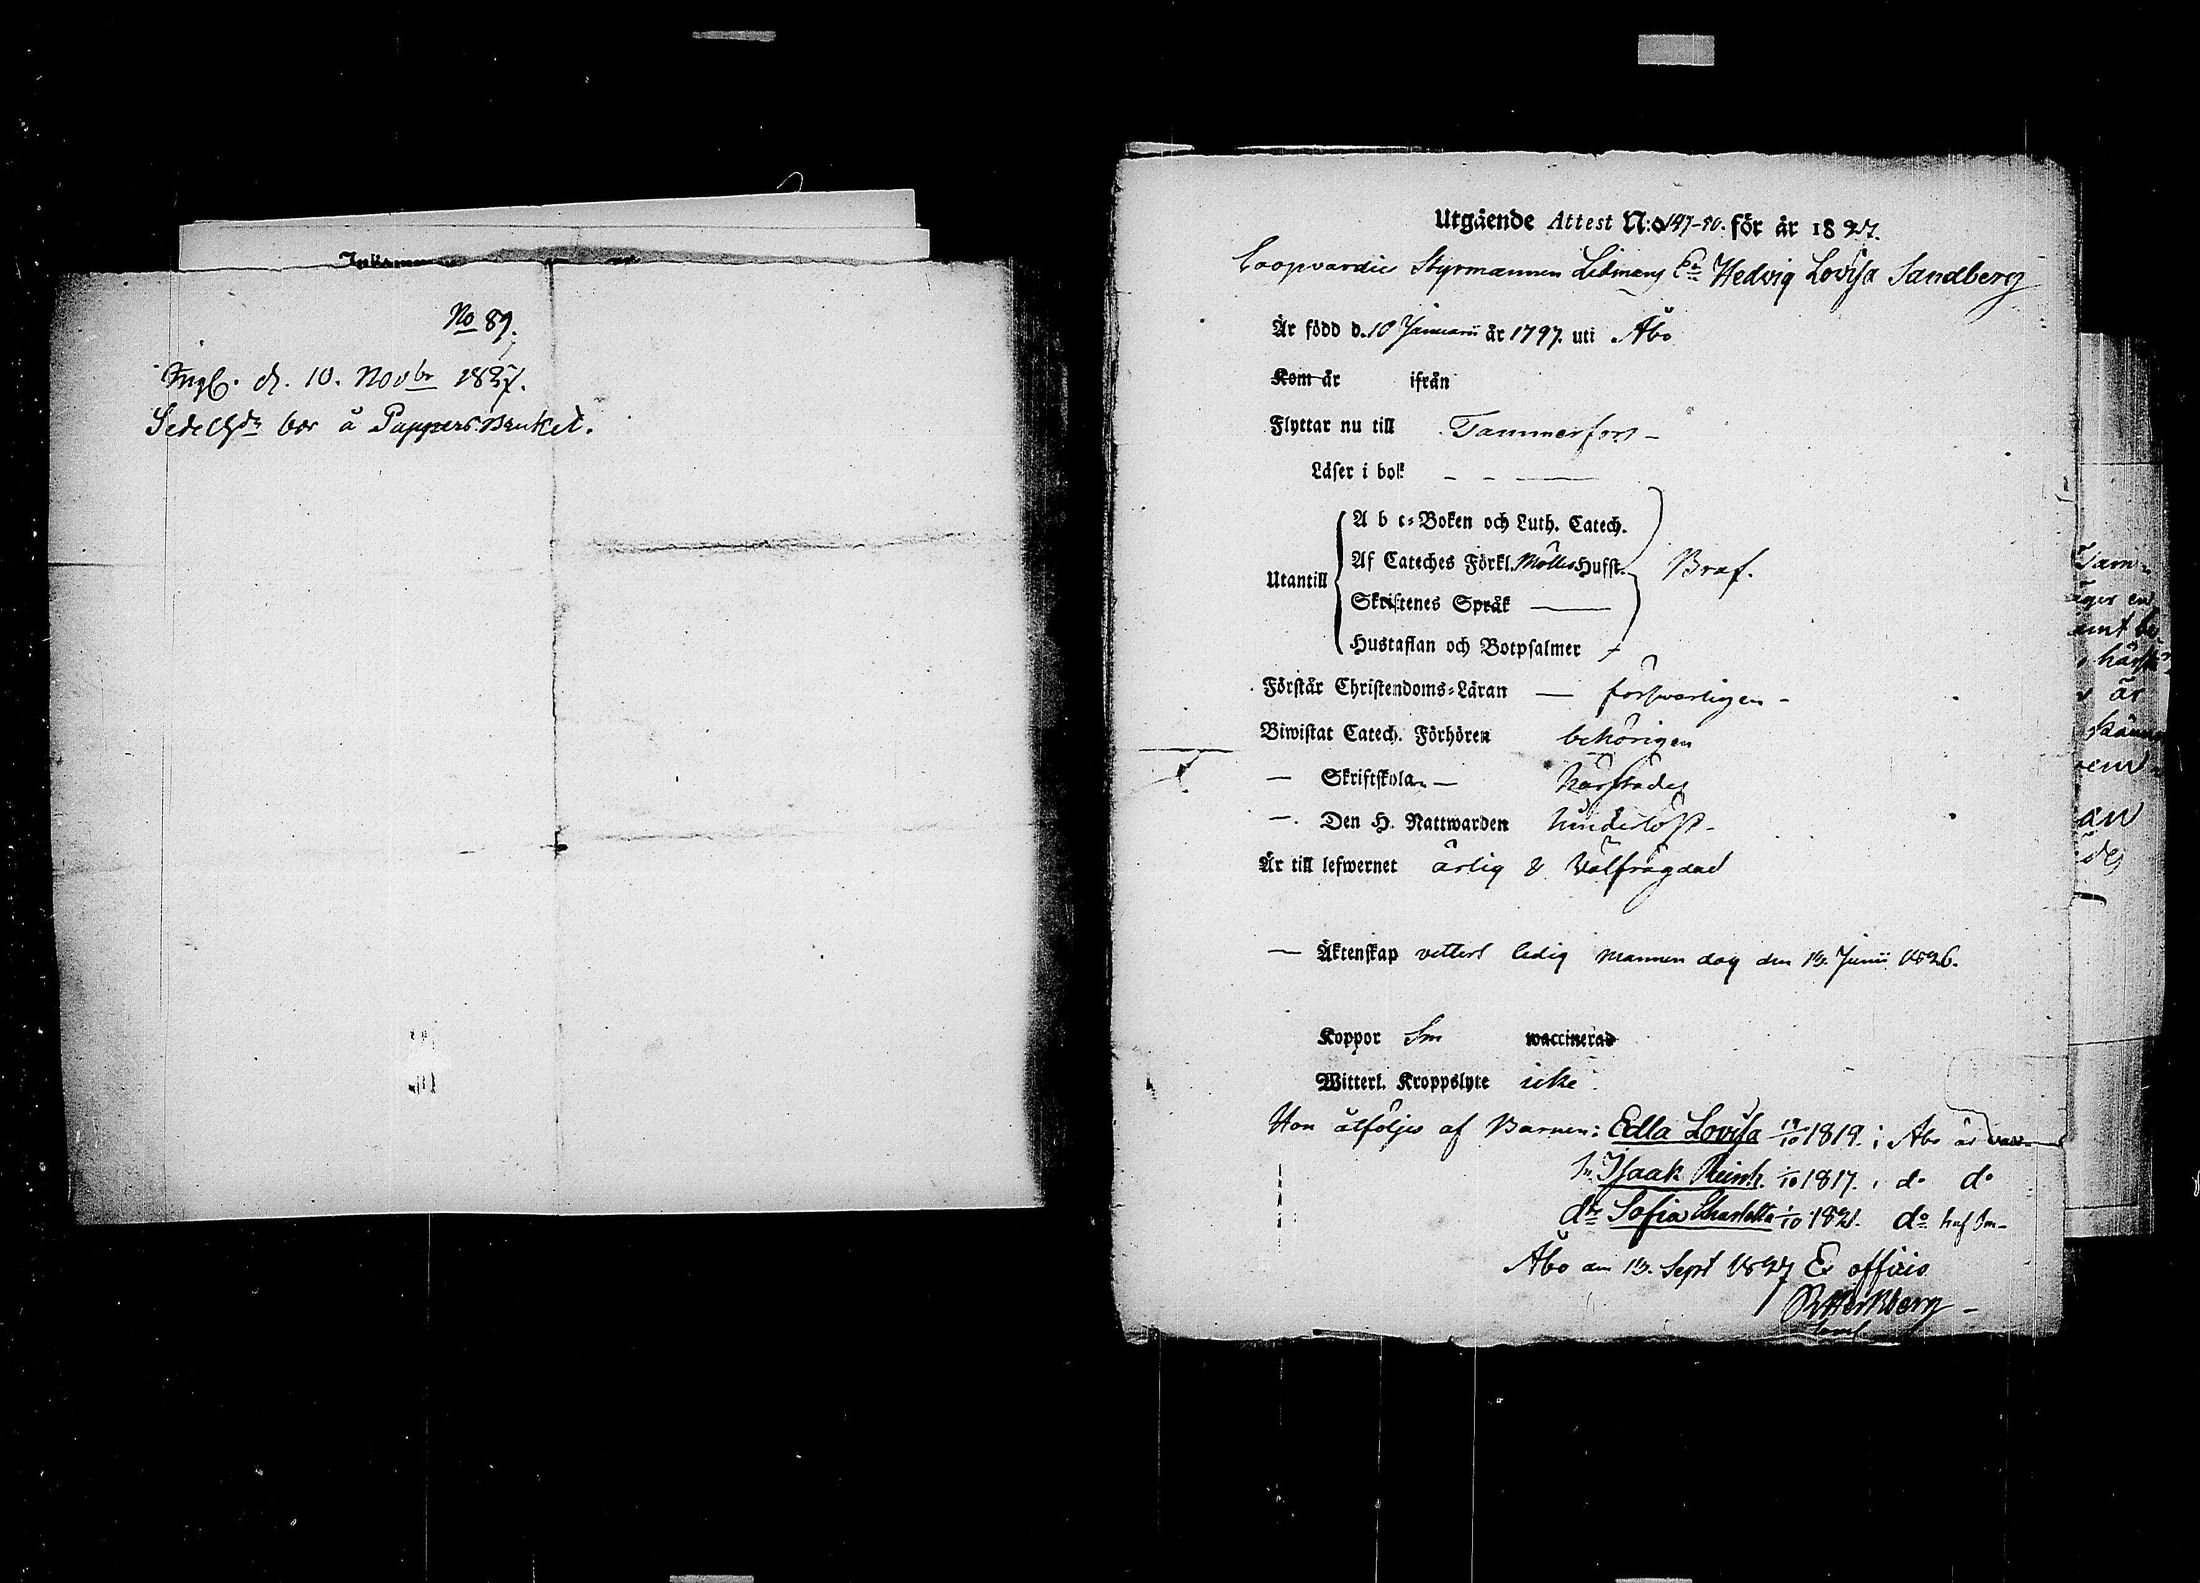 No 89.
Ingl. d. 10. Novbr 1827.
Sedelh. bor å Pappers Bruket.
Utgående Attest N:o 147-50. för år 1827.
Coopvardie Styrmannen Lidmans Ea Hedvig Lovisa Sandberg
Är född d. 10 Januarii år 1797. uti Åbo
Kom år ifrån
Flyttar nu till Tammerfors
Läser i bok
A b c-Boken och Luth. Catech.
Af Cateches Förkl. Möllers Husst.
Utantill Braf.
Skriftenes Språk
Hustaflan och Botpsalmer
Förstår Christendoms-Läran försvarligen
Biwistat Catech. Förhören behörigen
— Skriftskolan härstädes
— Den H. Nattwarden hinderlöst
Är till lefwernet ärlig & välfrägdad
— Äktenskap vetterl ledig mannen dog den 13. Junii 1826.
Koppor waccinerad
Witterl. Kroppslyte icke
Hon åtföljes af Barnen: Edla Lovisa 1819. i Åbo är
Isaak Reinh. 1/10 1817. i do do
dr Sofia Charlotta 1/10 1821. do haf
Åbo den 13. Sept 1827 Ex officio